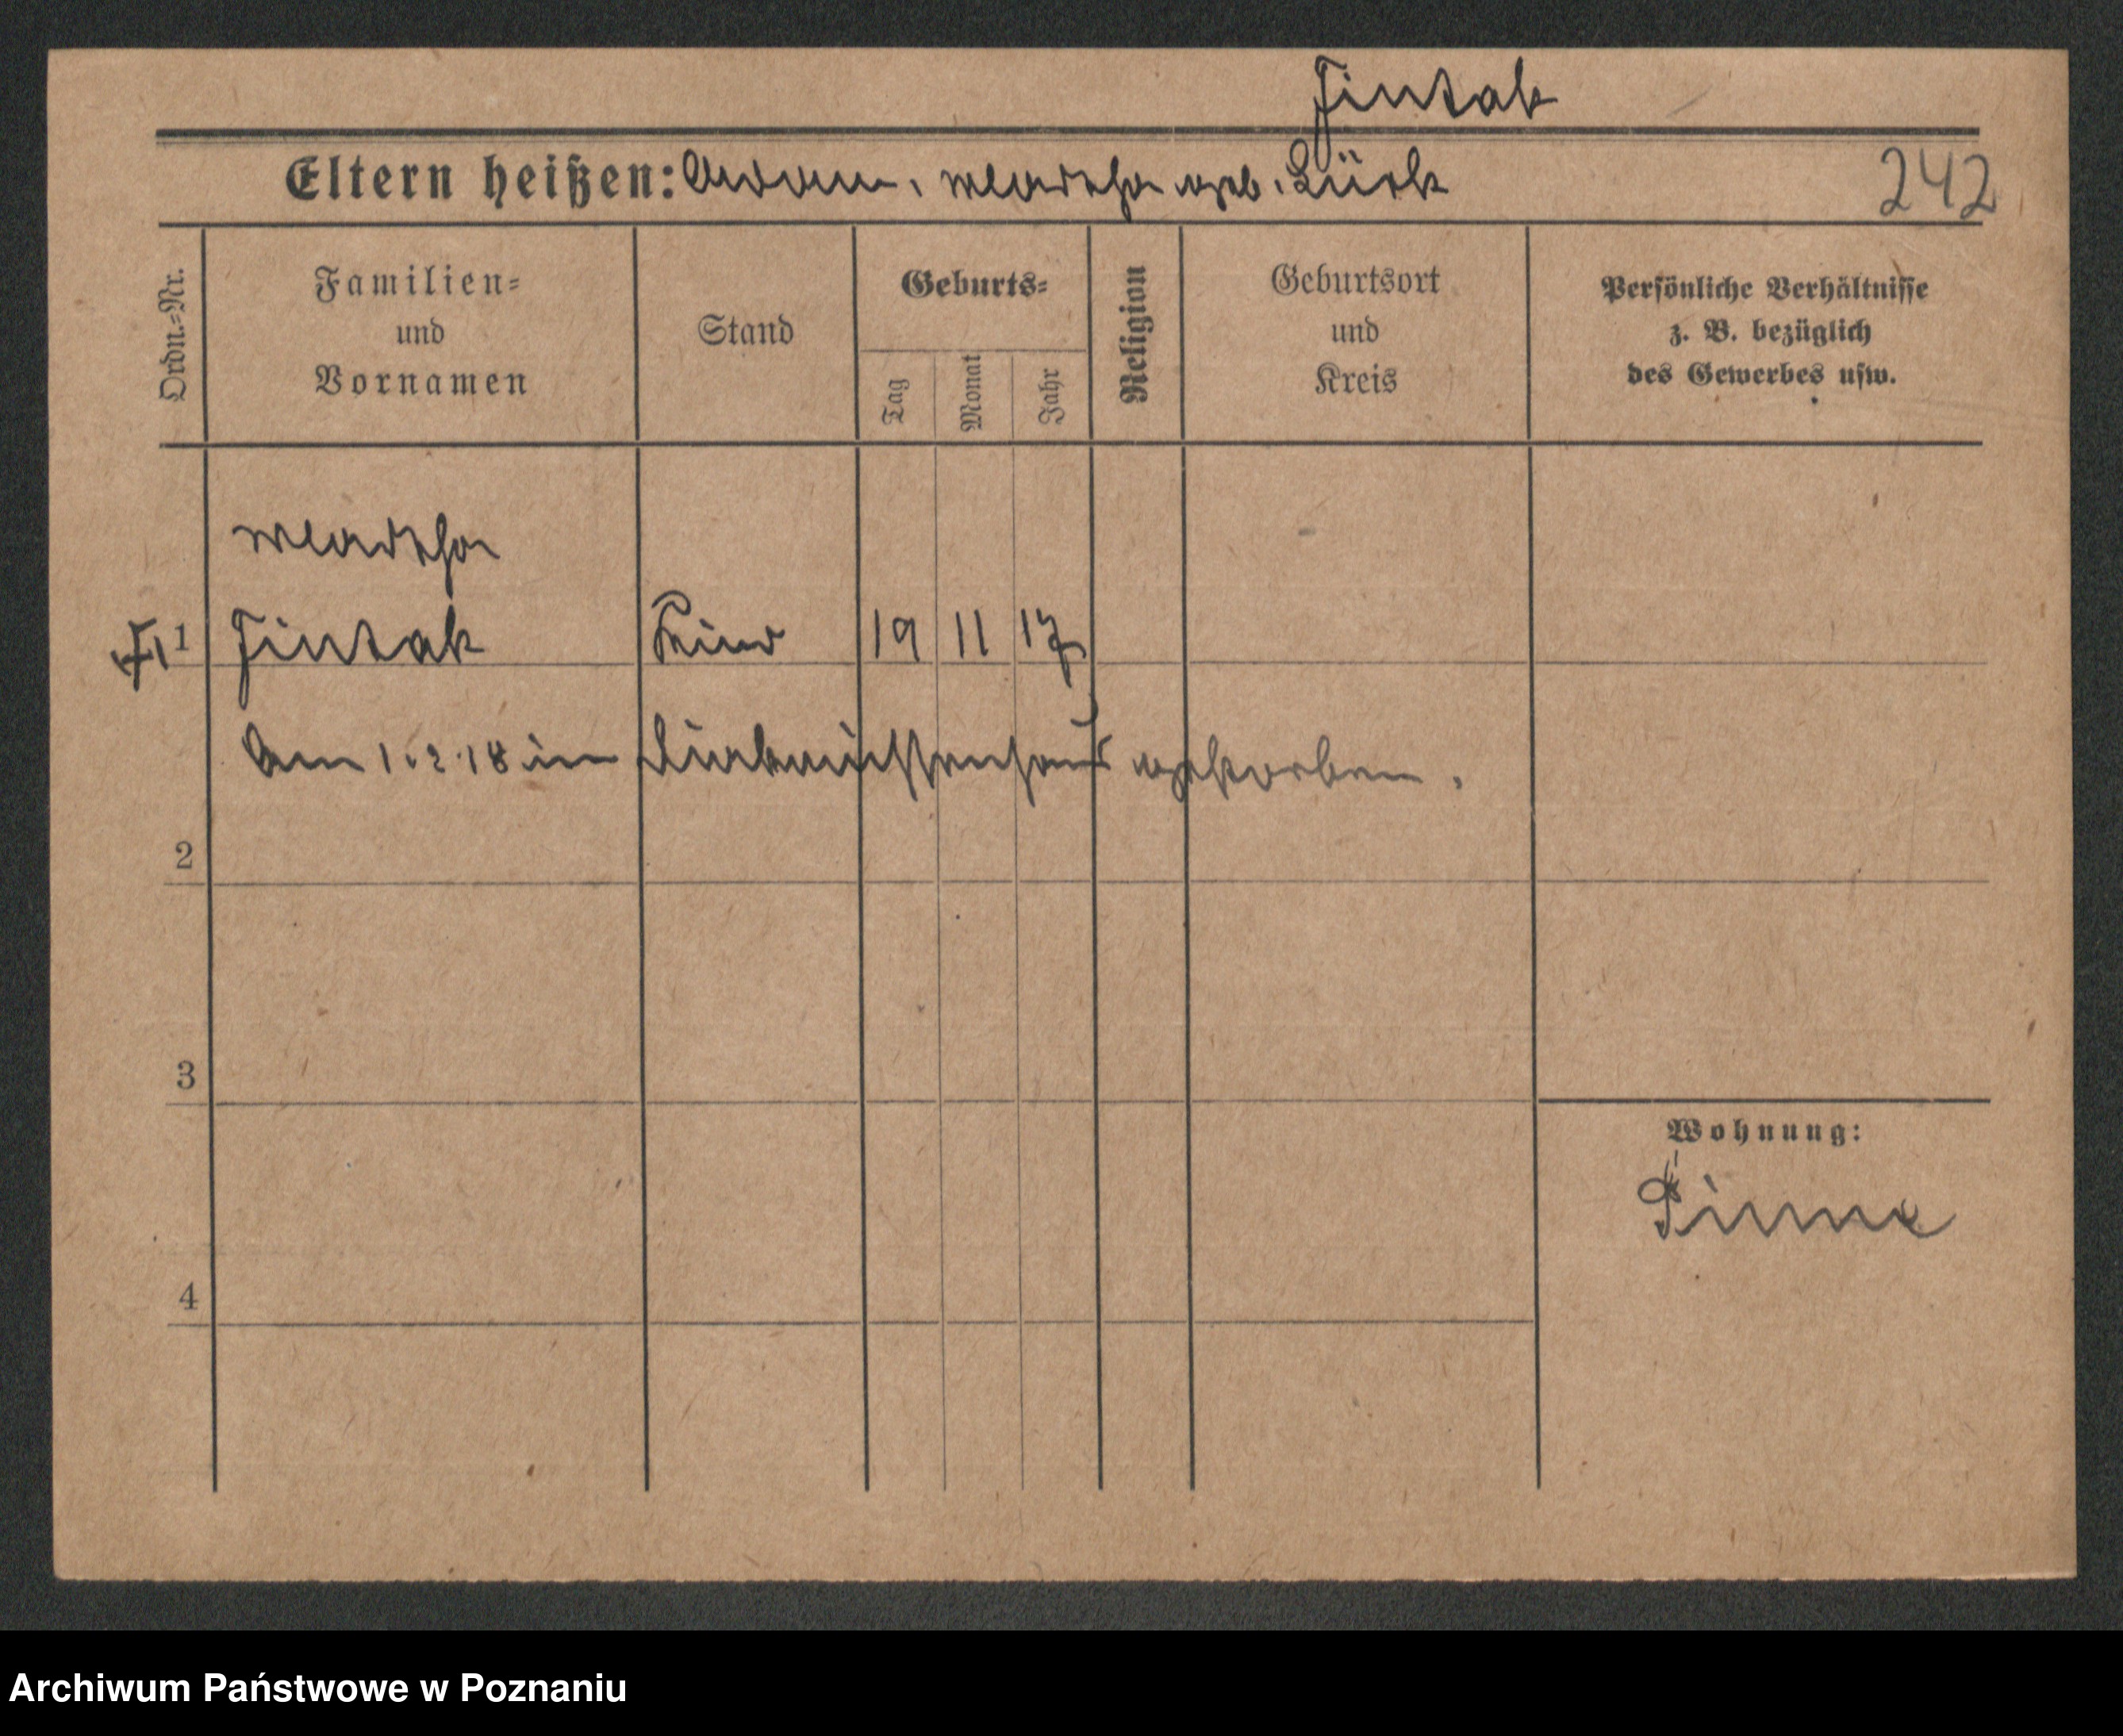 Jintak
Eltern heißen: Adam, Martha geb. Lück
242
Ordn.=Nr.
Familien=
und
Vornamen
Stand
Geburts=
Tag
Monat
Jahr
Religion
Geburtsort
und
Kreis
Persönliche Verhältnisse
z. B. bezüglich
des Gewerbes usw.
Martha
1 Jintak Kind 19 11 17
Am 1.2.18 im Diakonissenhaus gestorben.
2
3
Wohnung:
Pinne
4
Archiwum Państwowe w Poznaniu